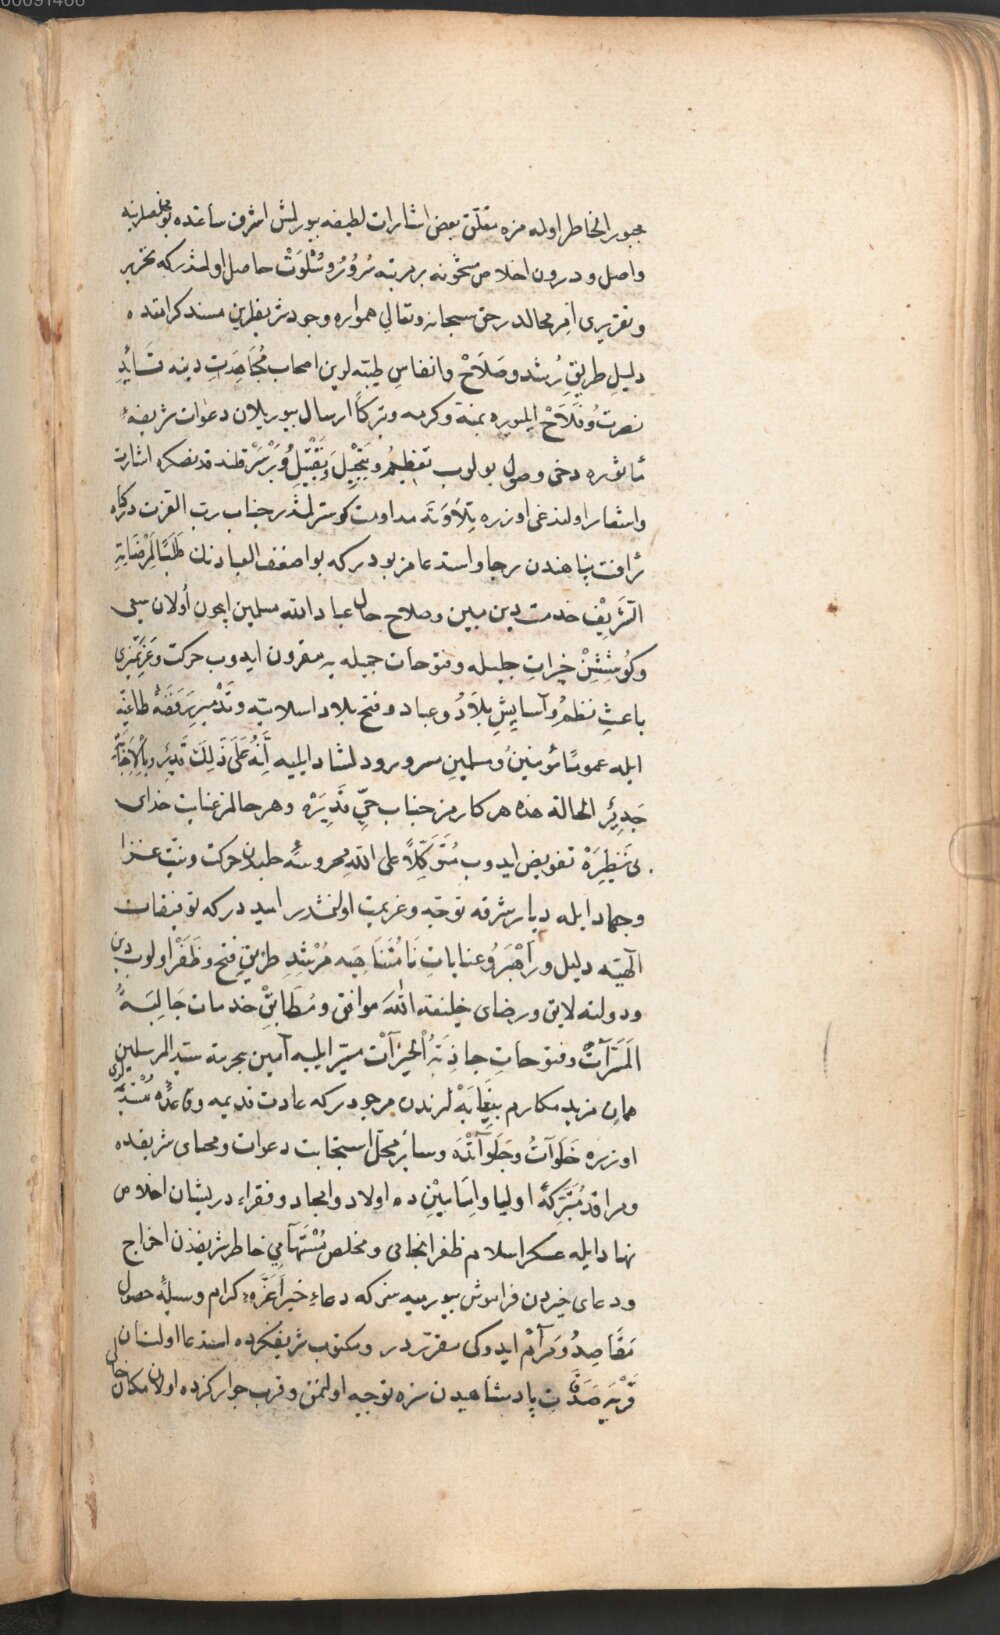 00091466
مجبور الخاطر اوله مزه متعلق بعض اشارات لطيفه بيورلمش اشرف ساعتده بو مخلصلرينه
واصل ودرون اخلاص مشحونه بر مرتبه سُرُورُ وسُلْوَتْ حاصل اولمشدركه تحرير
وتقريرى امرِ محالدر حق سبحانه وتعالى همواره وجود شريفلرين مسند كرامتده
دليلِ طريقِ رُشد وصَلَاحْ وانفاسِ طيبه لرين اصحاب مُجَاهَدَتِ دينه قَائِدِ
نصرتُ وفَلَاحْ ايليوره بمنه وكرمه وتبركاً ارسال بيوريلان دعوات شريفهٔ
مأثوره دخى وصول بولوب تعظيمُ وتبجيلَ وتقبيلُ وبرسَرْ قلندقدنصكره اشارت
واشعار اولندغى اوزره تِلَاوَتَه مداومت كوسترلمشدر جناب رب العزت دركاه
رأفت پناهندن رجا واستدعامز بودركه بو اضعف العبادنك طَلَبًا لِمَرْضَاتِهِ
الشَّرِيفْ خدمت دين مبين وصلاح حال عباد الله مسلمين ايچون أولان سعى
وكُوشِشِنْ خيرات جليله وفتوحات جميله يه مقرون ايدوب حركت وعَزِيمَتِمزى
باعثِ نظمُ وآسايشِ بِلَادُ وعباد وفتح بلاد اسلاميه وتَدْمِيرِ رَفَضَهٔ طاغيه
ايله عموماً مؤمنينُ ومسلمينِ مسرور ودلشاد ايليه اِنَّهُ عَلَى ذَلِكَ قَدِيرٌ وبِالْاِجَابَةِ
جَدِيرٌ الحالة هذه هر كارمز جناب حىِّ قَدِيرَهْ وهر حالمز عنايت خداى
بى نَظِيرَهْ تفويض ايدوب مُتَوَكِّلاً على اللهِ محروسهٔ حلبدن حركت ونيت غزا
وجهاد ايله ديار شرقه توجه وعزيمت اولنمشدر اميددركه توفيقات
الٰهيه دليل ورَاهْبَرُ وعنايات نَامُتَنَاهِيَه مُرْشِدِ طريقِ فتح وظَفَرْ اولوب دين
ودولته لايق ورضاى خليفة اللهَ موافق ومُطَابِقْ خدمات جَالِبَةُ
المَسَرَّاتْ وفتوحاتِ جاذِبَةُ الْخَيْرَاتْ ميسر ايليه آمين بحرمة سيد المرسلين
همان مزيد مكارم بِيغَايَهْ لرندن مرجودركه عادت قديمه وقاعدهٔ
اوزره خَلَوَاتُ وجَلَوَاتْدَه وسائر محلِ استجابت دعوات ومحياى شريفده
ومراقد مُتَبَرِّكَهٔ اوليا واِمَامَيْنِ ده اولاد وامجاد وفقراء درويشان اخلاص
نهاد ايله عسكر اسلام ظفر انجامى ومخلص مُسْتَهَامِى خاطر شريفدن اخراج
ودعاى خيردن فراموش بيورميه سزكه دعاءِ خيرِ اَعِزَّهءِ كرام وسيلهٔ حصول
مَقَاصِدُ ومَرَامْ ايدوكى مقرردر ومكتوب شريفكزده استدعا اولنان
قَرْيَه صَدَقَاتِ پادشاهيدن سزه توجيه اولنمق وقرب جواركزده اولان مكان خالى